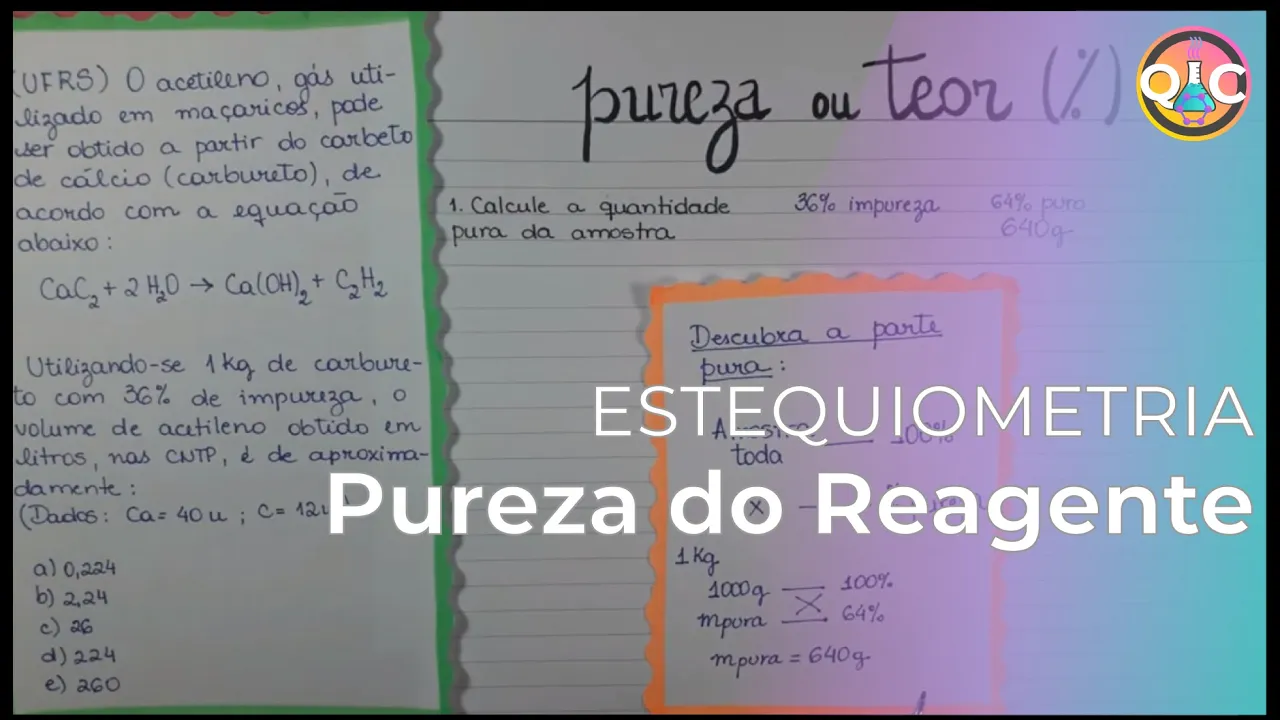 (UFRS) O acetileno, gás uti-
lizado em maçaricos, pode
ser obtido a partir do carbeto
de cálcio (carbureto), de
acordo com a equação
abaixo:
CaC₂ + 2 H₂O → Ca(OH)₂ + C₂H₂
Utilizando-se 1 kg de carbure-
to com 36% de impureza, o
volume de acetileno obtido em
litros, nas CNTP, é de aproxima-
damente:
(Dados: Ca = 40 u ; C = 12u
a) 0,224
b) 2,24
c) 26
d) 224
e) 260
pureza ou teor (%)
QC
1. Calcule a quantidade
pura da amostra
36% impureza
64% puro
640g
Descubra a parte
pura:
Amostra — 100%
toda
x —
1 Kg
1000g — 100%
mpura — 64%
mpura = 640g
ESTEQUIOMETRIA
Pureza do Reagente